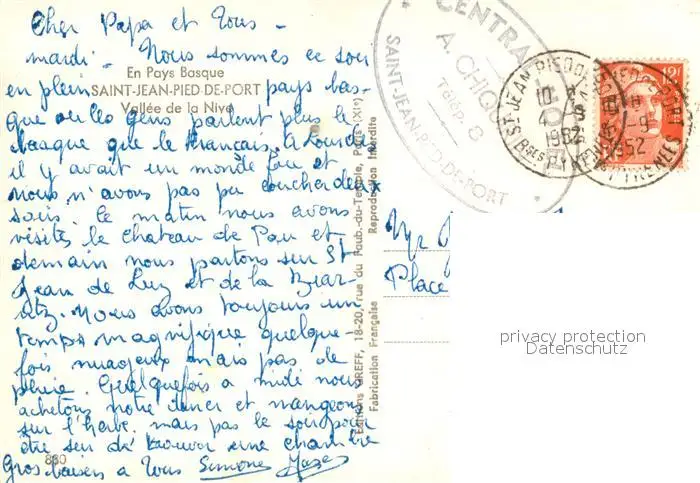 Cher Papa et Tous -
mardi - Nous sommes ce soir
en plein pays bas-
que ou les gens parlent plus le
basque que le francais. A Lourdes
il y avait un monde fou et
nous n'avons pas pu coucher deux
soirs. le matin nous avons
visités le chateau de Pau et
demain nous partons sur St
Jean de Luz et de la Biar
itz. Nous avons toujours un
temps magnifique quelque-
fois nuageux mais pas de
pluie. Quelquefois a midi nous
achetons notre diner et mangeons
sur l'herbe. mais pas le soir pour
être sur de trouver une chambre
Gros baisers a Tous Simone
En Pays Basque
SAINT-JEAN-PIED-DE-PORT
Vallée de la Nive
880
Editions GREFF, 18-20, rue du Faub.-du-Temple, Paris (XIe)
Fabrication Française Reproduction Interdite
CENTRAL
A. CHIQU
Télép. 8
SAINT-JEAN-PIED-DE-PORT
ST JEAN PIED DE PORT
1952
Bses PYRENEES
12f
Mr
Place
privacy protection
Datenschutz